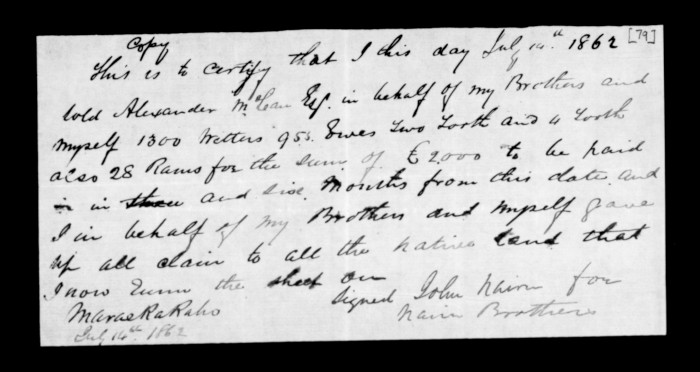 Copy
[79]
This is to certify that I this day July 14th 1862
Sold Alexander McLean Esq. in behalf of my Brothers and
myself 1300 Wetters 953 Ewes Two Tooth and 4 Tooth
also 28 Rams for the sum of £2000 to be paid
in and six Months from this date and
I in behalf of my Brothers and myself gave
up all claim to all the native land that
I now runn the sheep on
signed John Nairn for
Nairn Brothers
Maraekakaho
July 14th 1862